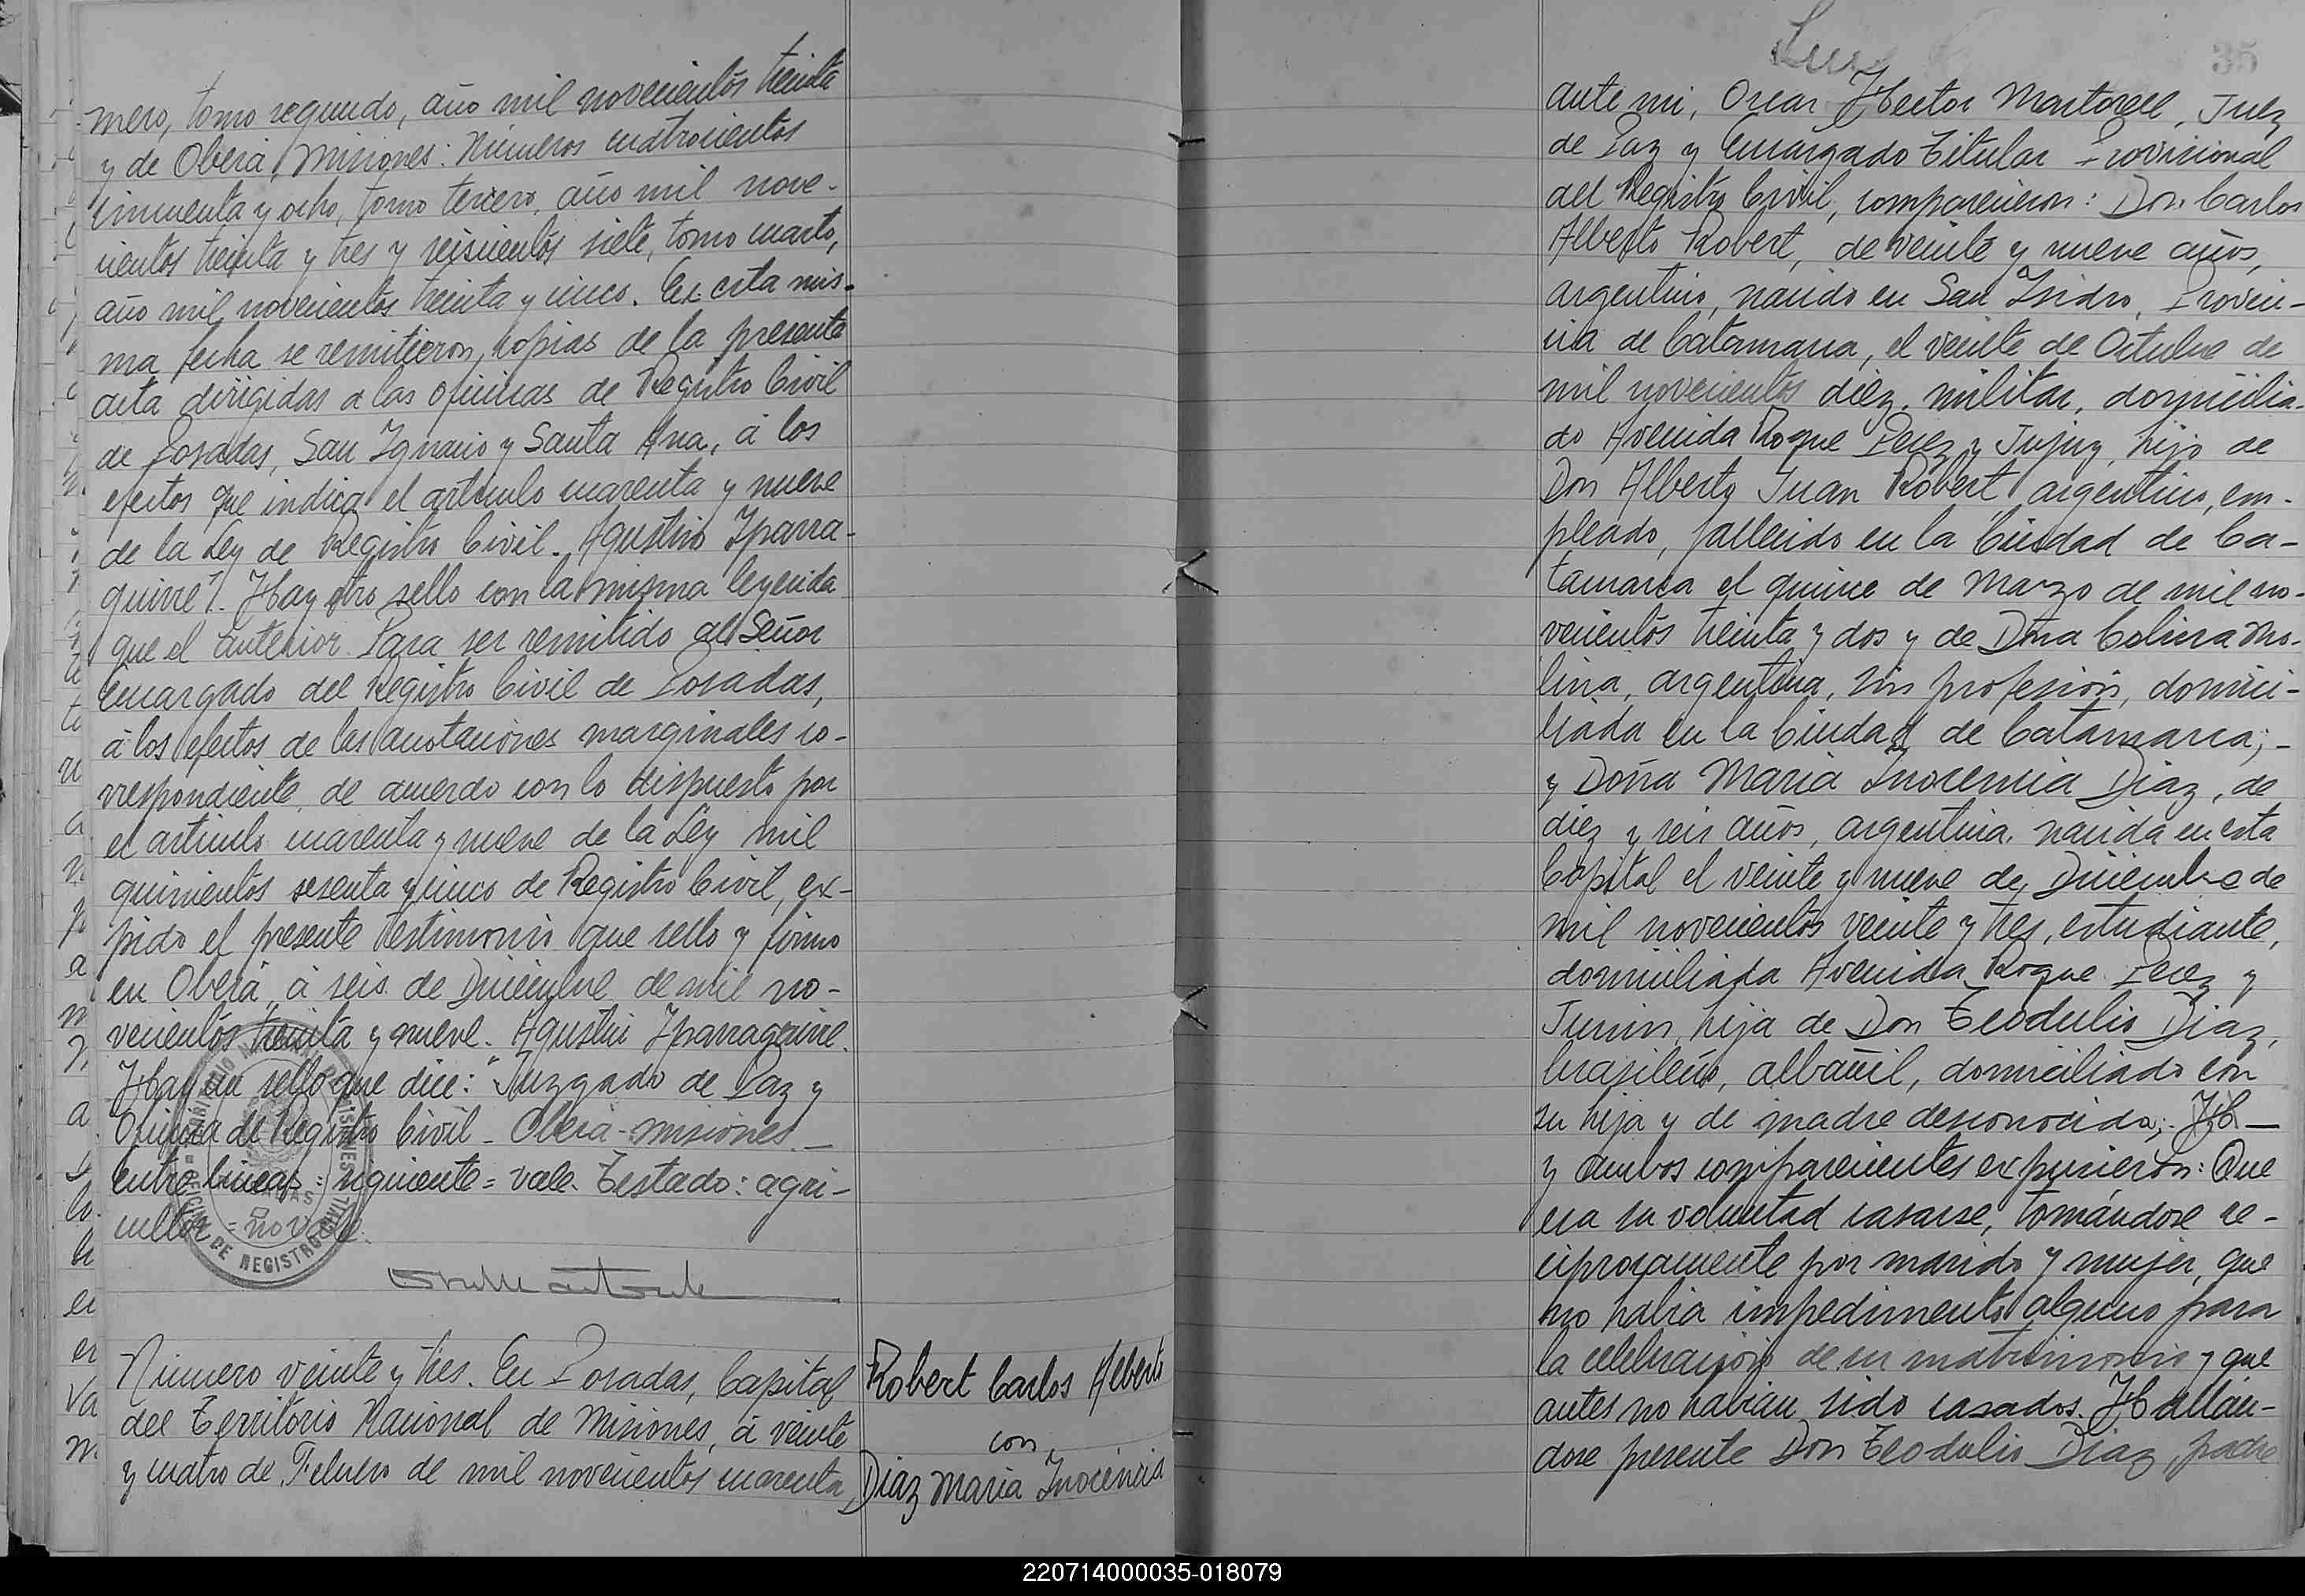 mero, tomo segundo, año mil novecientos treinta
y de Oberá, Misiones: Números cuatrocientos
cincuenta y ocho, tomo tercero, año mil nove-
cientos treinta y tres y seiscientos siete, tomo cuarto,
año mil novecientos treinta y cinco. En esta mis-
ma fecha se remitieron copias de la presente
acta dirigidas a las oficinas de Registro Civil
de Posadas, San Ignacio y Santa Ana, á los
efectos que indica el artículo cuarenta y nueve
de la Ley de Registro Civil. Agustin Yparra-
guirre". Hay otro sello con la misma leyenda
que el anterior. Para ser remitido al Señor
Encargado del Registro Civil de Posadas,
á los efectos de las anotaciones marginales co-
rrespondiente, de acuerdo con lo dispuesto por
el artículo cuarenta y nueve de la Ley mil
quinientos sesenta y cinco de Registro Civil, ex-
pido el presente testimonio que sello y firmo
en Oberá, á seis de Diciembre de mil no-
vecientos treinta y nueve. Agustin Yparraguirre.
Hay un sello que dice: "Juzgado de Paz y
Oficina de Registro Civil - Oberá - Misiones. —
Entre lineas = siguiente = vale. Testado: agri-
cultor = no vale.
Número veinte y tres. En Posadas, Capital
del Territorio Nacional de Misiones, á veinte
y cuatro de Febrero de mil novecientos cuarenta,
Robert Carlos Alberto
con
Diaz Maria Inocencia
35
ante mi, Oscar Hector Martorell, Juez
de Paz y Encargado Titular Provisional
del Registro Civil, comparecieron: Don Carlos
Alberto Robert, de veinte y nueve años,
argentino, nacido en San Isidro, Provin-
cia de Catamarca, el veinte de Octubre de
mil novecientos diez, militar, domicilia-
do Avenida Roque Perez y Jujuy, hijo de
Don Alberto Juan Robert, argentino, em-
pleado, fallecido en la Ciudad de Ca-
tamarca el quince de Marzo de mil no-
vecientos treinta y dos y de Doña Celina Mo-
lina, argentina, sin profesión, domici-
liada en la Ciudad de Catamarca; -
y Doña Maria Inocencia Diaz, de
diez y seis años, argentina, nacida en esta
Capital el veinte y nueve de Diciembre de
mil novecientos veinte y tres, estudiante,
domiciliada Avenida Roque Perez y
Junin, hija de Don Teodulio Diaz,
brasileño, albañil, domiciliado con
su hija y de madre desconocida; Hl —
y ambos comparecientes expusieron: Que
era su voluntad casarse, tomándose re-
ciprocamente por marido y mujer, que
no habia impedimento alguno para
la celebración de su matrimonio y que
antes no habian sido casados. Hallán-
dose presente Don Teodulio Diaz, padre
220714000035-018079